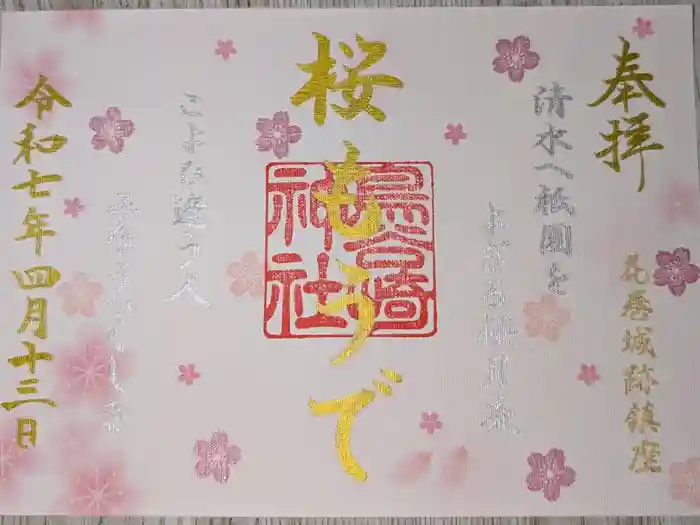 奉拝
花巻城跡鎮座
清水へ祇園を
よぎる桜月夜
桜もうで
鳥谷崎
神社
こよひ逢ふ人
みなうつくしき
令和七年四月十三日